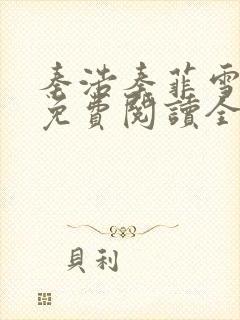 秦浩秦菲雪
免費閱讀全
貝利